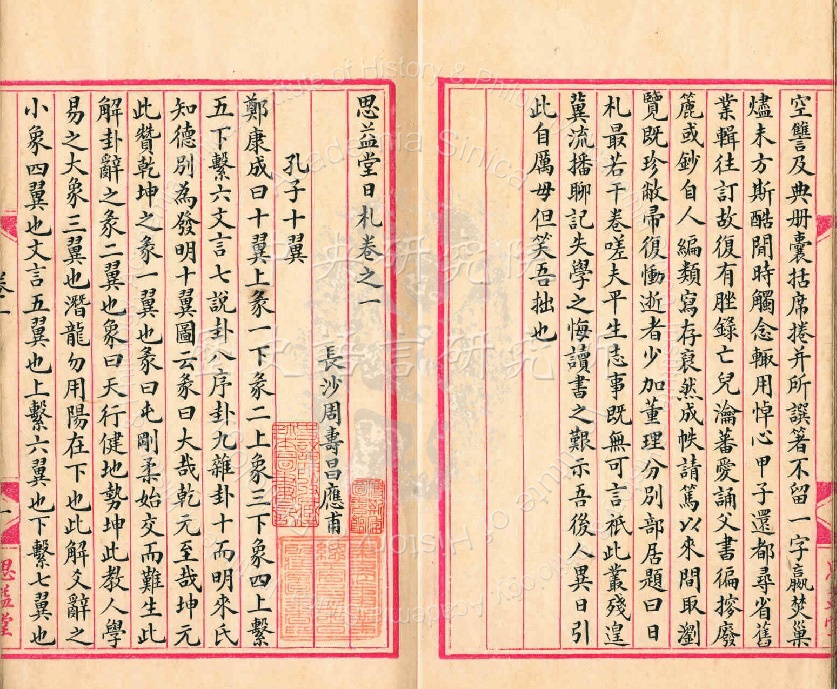 空讐及典册囊括席捲并所譔箸不留一字嬴焚巢
燼未方斯酷閒時觸念輙用悼心甲子還都尋省舊
業輯往訂故復有脞錄亡兒瀹蕃愛誦父書徧搜廢
簏或鈔自人編類寫存裒然成帙請篤以來間取瀏
覽既珍敝帚復慟逝者少加董理分別部居題曰日
札最若干卷嗟夫平生志事既無可言祇此叢殘遑
冀流播聊記失學之悔讀書之艱示吾後人異日引
此自厲毋但笑吾拙也
思益堂日札卷之一
長沙周壽昌應甫
孔子十翼
鄭康成曰十翼上彖一下彖二上象三下象四上繫
五下繫六文言七說卦八序卦九雜卦十而明來氏
知德別為發明十翼圖云彖曰大哉乾元至哉坤元
此贊乾坤之彖一翼也彖曰屯剛柔始交而難生此
解卦辭之彖二翼也象曰天行健地勢坤此教人學
易之大象三翼也潛龍勿用陽在下也此解爻辭之
小象四翼也文言五翼也上繫六翼也下繫七翼也
卷一
一
思益堂
中央研究院
歷史語言研究所
Institute of History & Philology
Academia Sinica